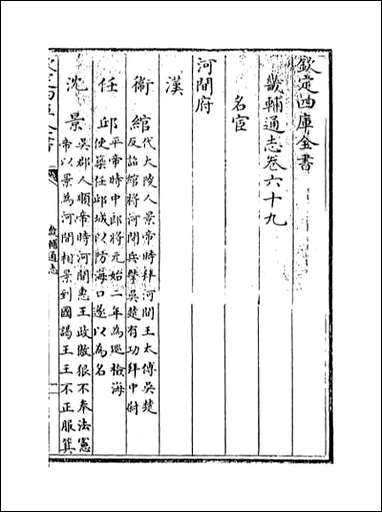 欽定四庫全書
畿輔通志卷六十九
名宦
河間府
漢
衛綰代大陵人景帝時拜河間王太傅吳楚
反詔綰將河間兵擊吳楚有功拜中尉
任邱平帝時中郎將元始二年為巡檢海
使築任邱城以防海口遂以為名
沈景吳郡人順帝時河間惠王政傲狠不奉法憲
帝以景為河間相景到國謁王王不正服箕
畿輔通志